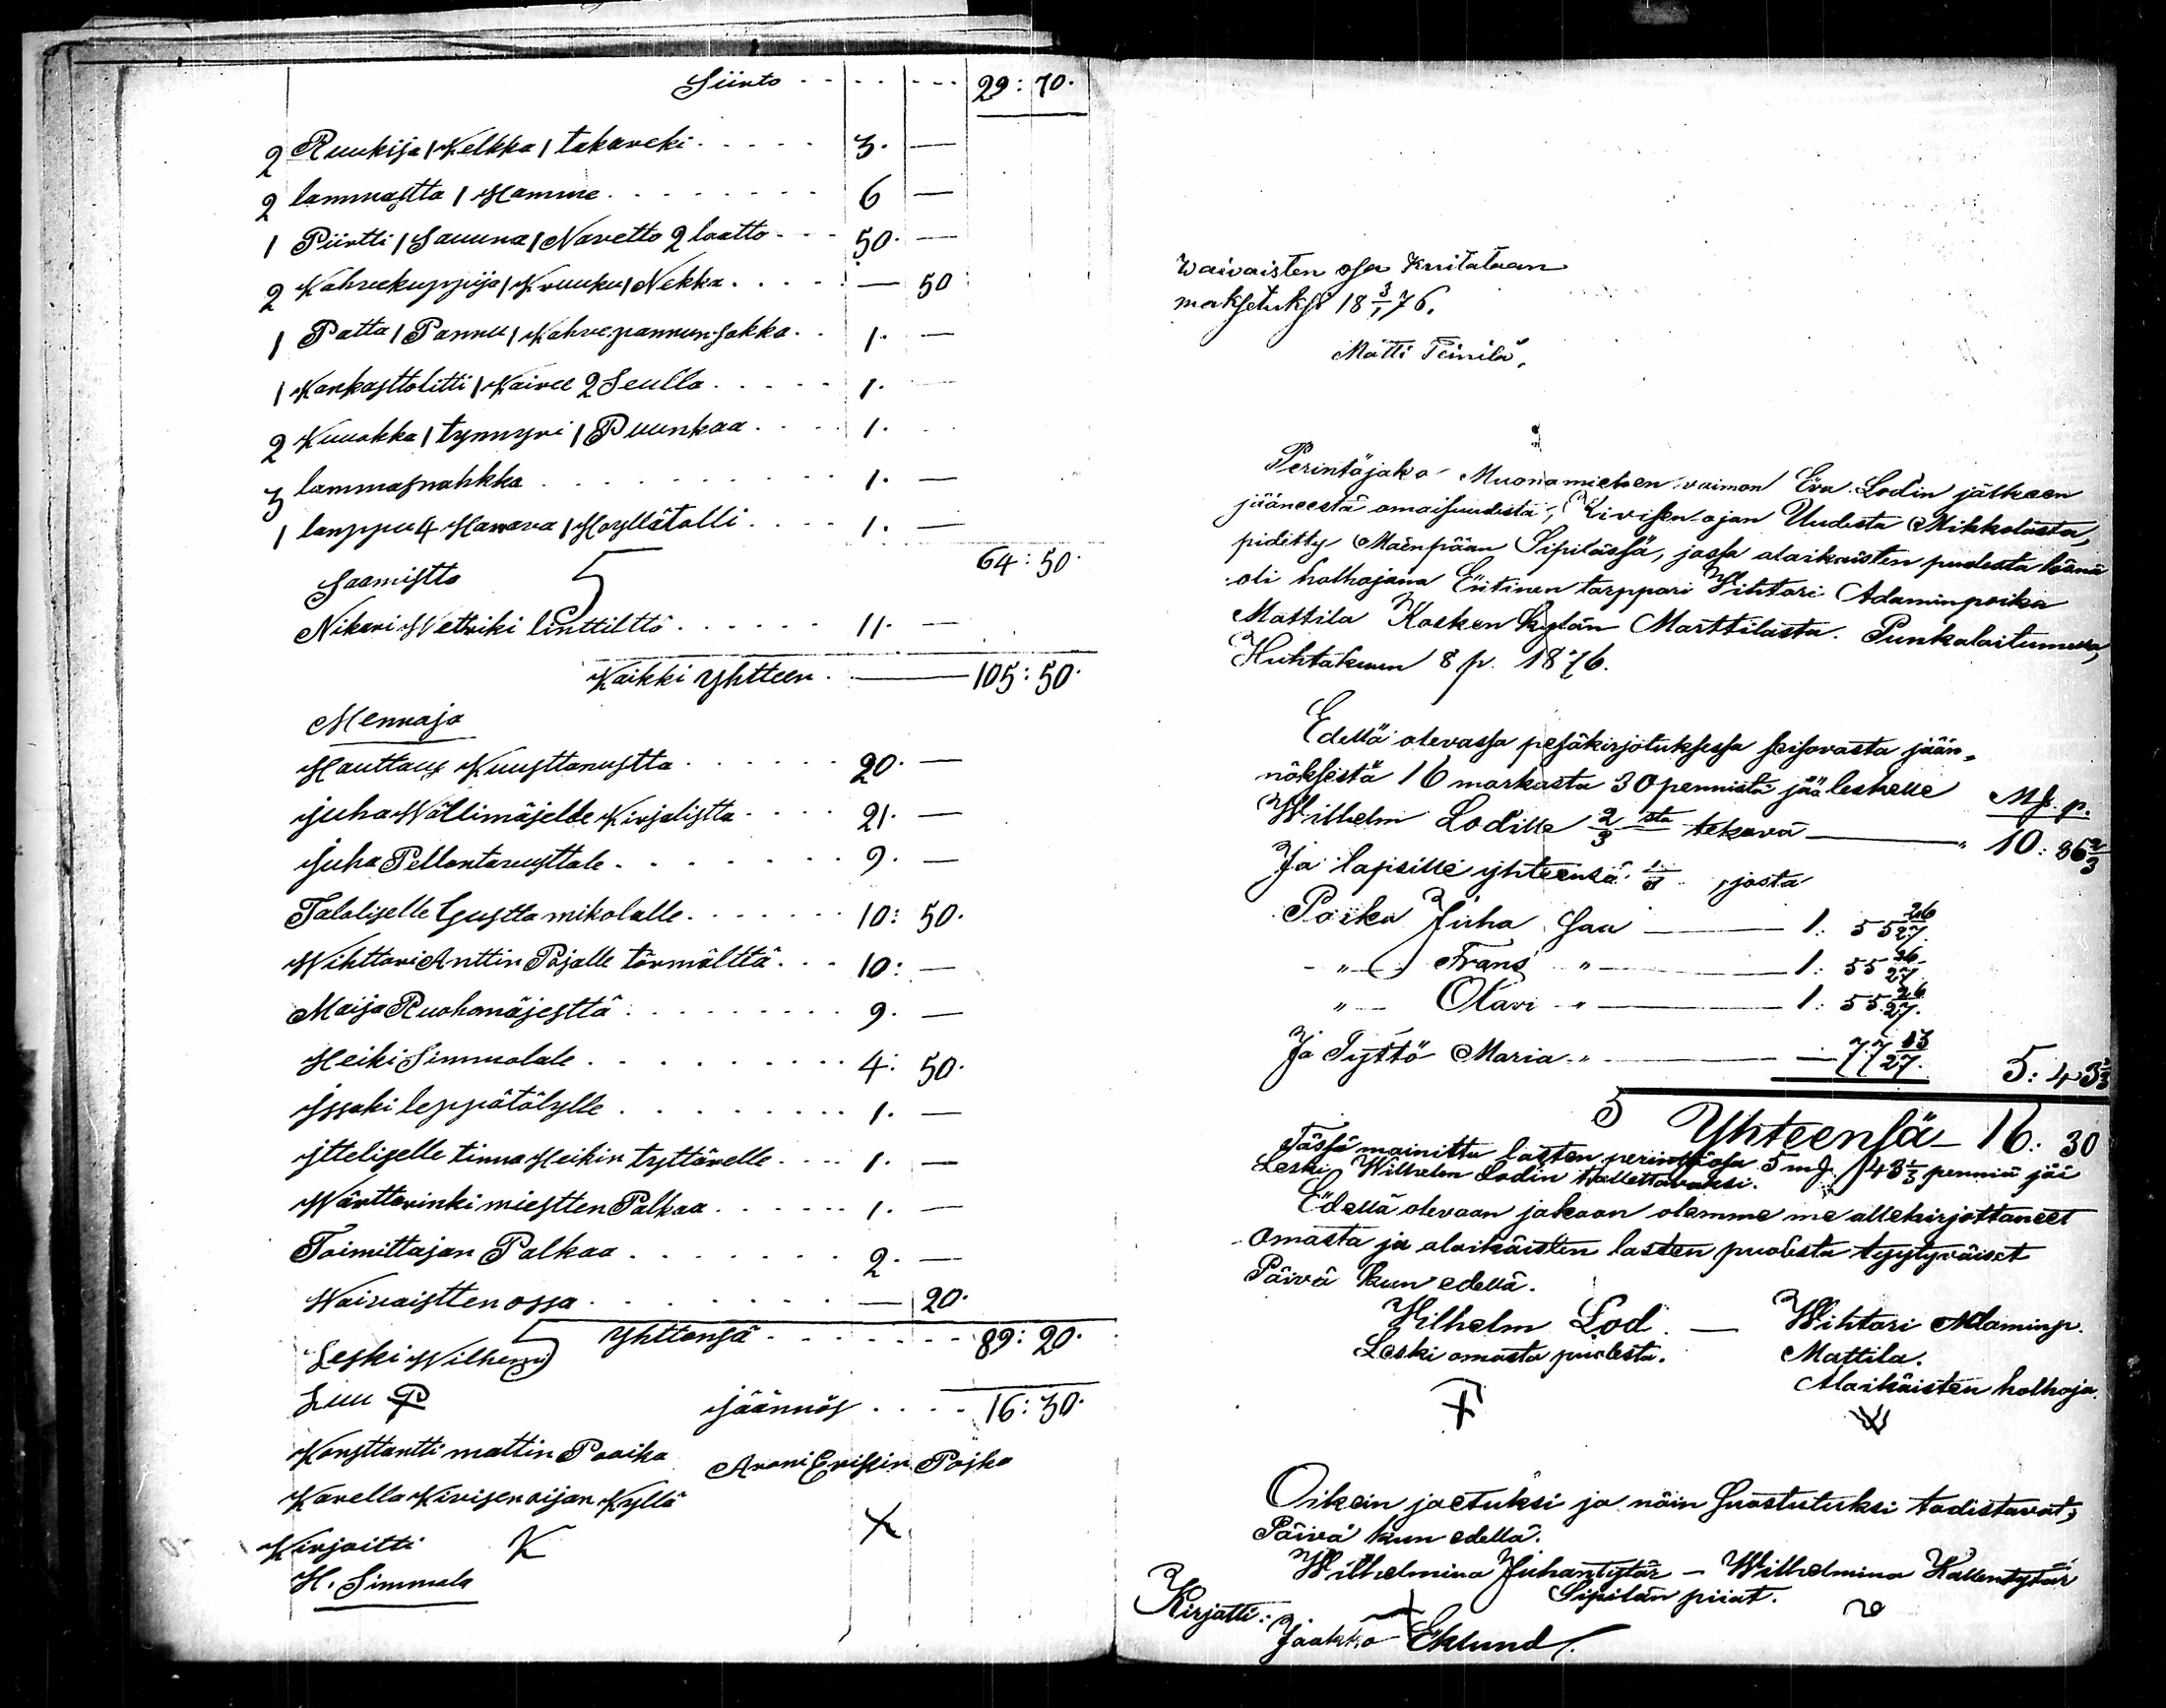 Siirto - - - - - - - 29: 70.
2 Ruukija / Kelkka / takareki . . . . . 3. —
2 lammastta / Hamme . . . . . . . . 6 —
1 Piirtti / Sauuna / Navetto 2 laatto - - - 50. —
2 Kahveekuppija / Kruuku / Nekka . . . . — 50
1 Patta / Pannu / Kahvepannun jakka . . 1. —
1 Kankasttolitti / Kaivee 2 Seulla . . . . . 1. —
2 Kuuokka / tynnyri / Puunkaa . . . . 1.
3 lammasnahkka . . . . . . . . . . 1. —
1 lamppu 4 Harava / Hoyllätolli . . . . 1. —
64: 50.
Saamistto
Nikari Hetriki linttilttä . . . . . . 11. —
Kaikki yhtteen . —— 105: 50.
Mennaja
Hauttaus Kuusttanustta . . . . . . 20. —
juha Wällimäjelde Kirjalistta . . . . 21. —
juha Pellontaeusttale . . . . . . . 9. —
Taloliselle Gustta mikolalle . . . . . . 10: 50.
Wihttori Anttin Pojalle törmälttä . . . 10: —
Maija Ruohomäjesttä . . . . . . . . 9. —
Heiki Simmolale . . . . . . . . . 4: 50.
Issaki leppätälylle . . . . . . . . . 1. —
ittelliselle tinna Heikin tyttärelle . . . . 1. —
Wärttarinki miestten Palkaa . . . . . . 1. —
Toimittajan Palkaa . . . . . . . 2. —
Waivaistten ossa . . . . . . . — 20.
yhttensä . . . . . . . 89: 20.
Leski Wilhemi
Luu P
jäännös . . . . 16: 30.
Konsttantti mattin Pooika
Aroni Erikin Pojka
Karella Kirisen oijan Kyllä
X
Kirjoitti K
H. Simmala
Waivaisten osa Kuitataan
maksetuksi 18 3/1 76.
Matti Teinilä,
Perintöjako Muonamiehen vaimon Eva Lodin jälkeen
jääneestä omaisuudesta, Kivisen-ojan Uudesta Mikkolasta,
pidetty Mäenpään Sipilässä, jossa alaikäisten puolesta läsnä
oli holhojana Entinen torppari Wihtori Adaminpoika
Mattila Kosken Kylän Marttilasta. Punkalaitumella,
Huhtakuun 8 p. 1876.
Edellä olevassa pesäkirjotuksessa seisovasta jään-
nöksestä 16 markasta 30 pennistä jää leskelle
Wilhelm Lodille 2/3 sta tekevä —— Mk. p. 10: 86 2/3
Ja lapsille yhteensä 1/3 , josta
Poika Juha saa —— 1: 55 26/27.
" Frans " —— 1: 55 26/27
" Otavi " —— 1: 55 26/27.
Ja Tyttö Maria " —— — 77 13/27. 5: 43 1/3
Yhteensä 16: 30
Tässä mainittu lasten perintöosa 5 mk 43 1/3 penniä jäi
Leski Wilhelm Lodin talletettavaksi.
Edellä olevaan jakoon olemme me allekirjottaneet
omasta ja alaikäisten lasten puolesta tyytyväiset
Päivä kuin edellä.
Wilhelm Lod. — Wihtari Adaminp.
Leski omasta puolesta. Mattila.
Alaikäisten holhoja.
Oikein jaetuksi ja näin suostutuksi todistavat,
Päivä kun edellä.
Wilhelmina Juhantytär — Wilhelmina Kallentytär
Sipilän piiat.
Kirjotti:
Jaakko Eklund.